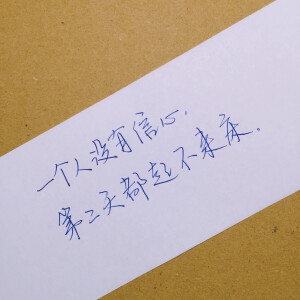 一个人没有信心.
第二天都起不来床.